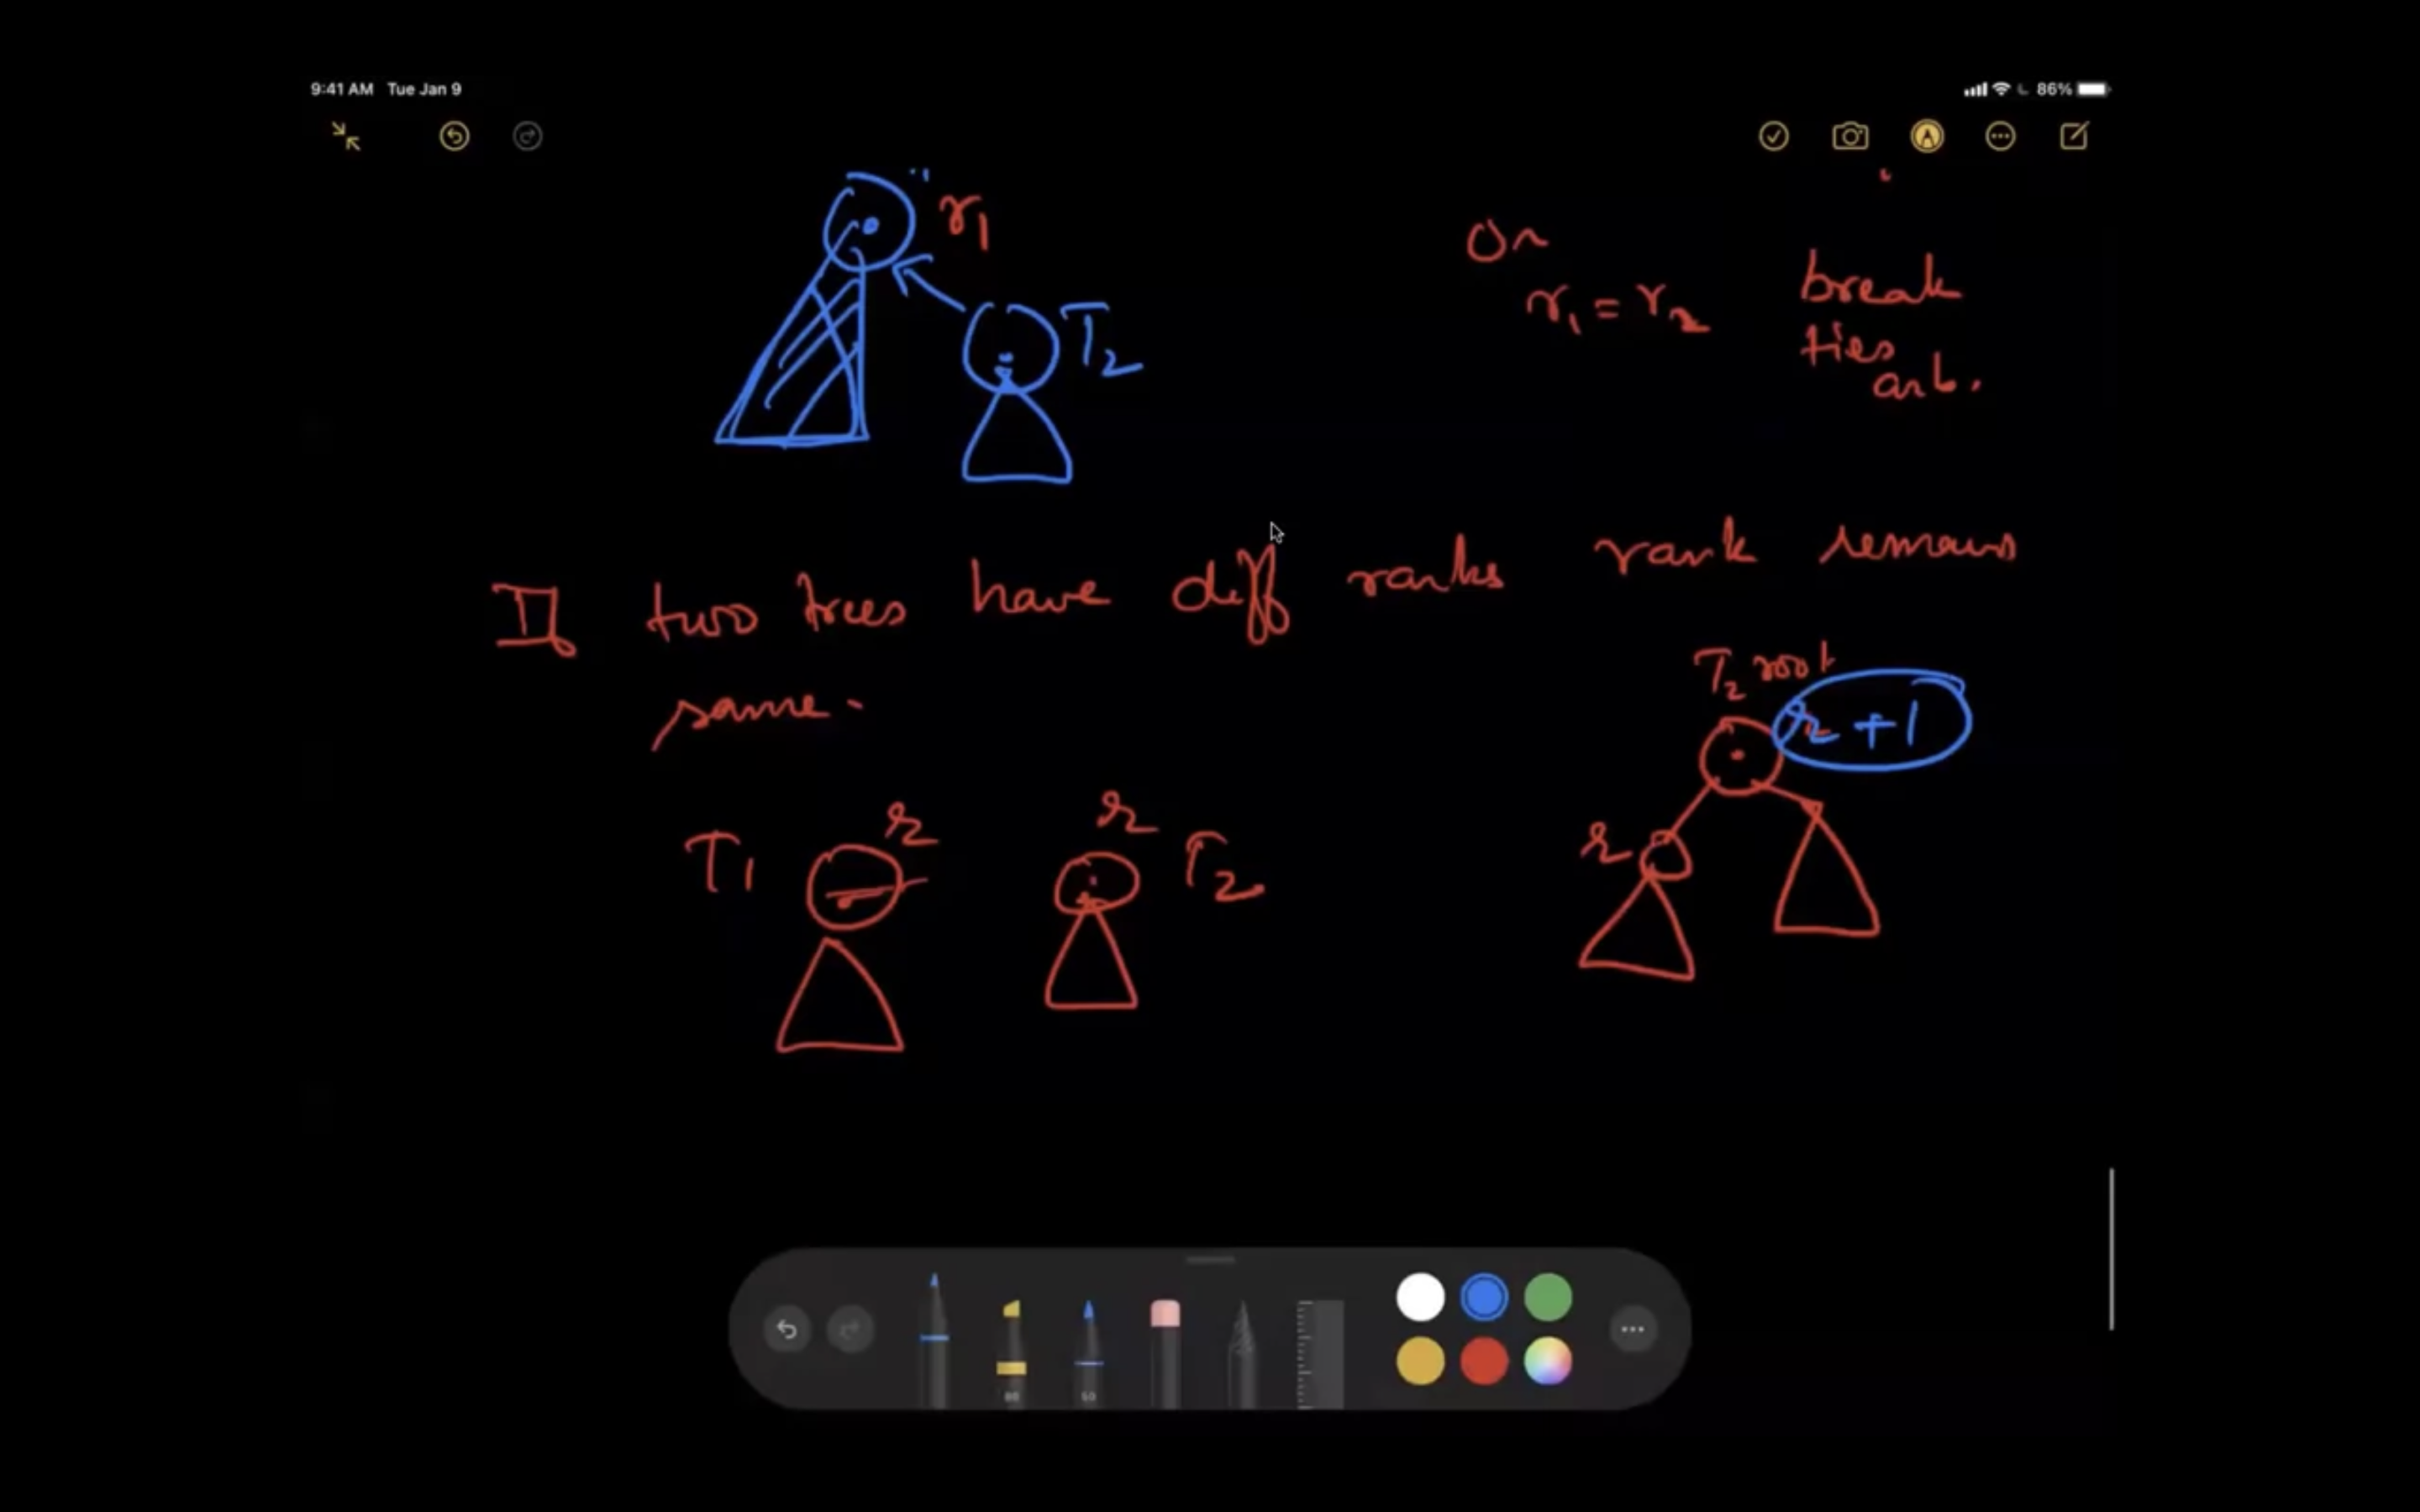 9:41 AM Tue Jan 9
86%
r1
T2
Or
r1 = r2
break
ties
arb.
If two trees have diff ranks rank remains
same.
T2 root
r + 1
T1
r
r
T2
r
80
50